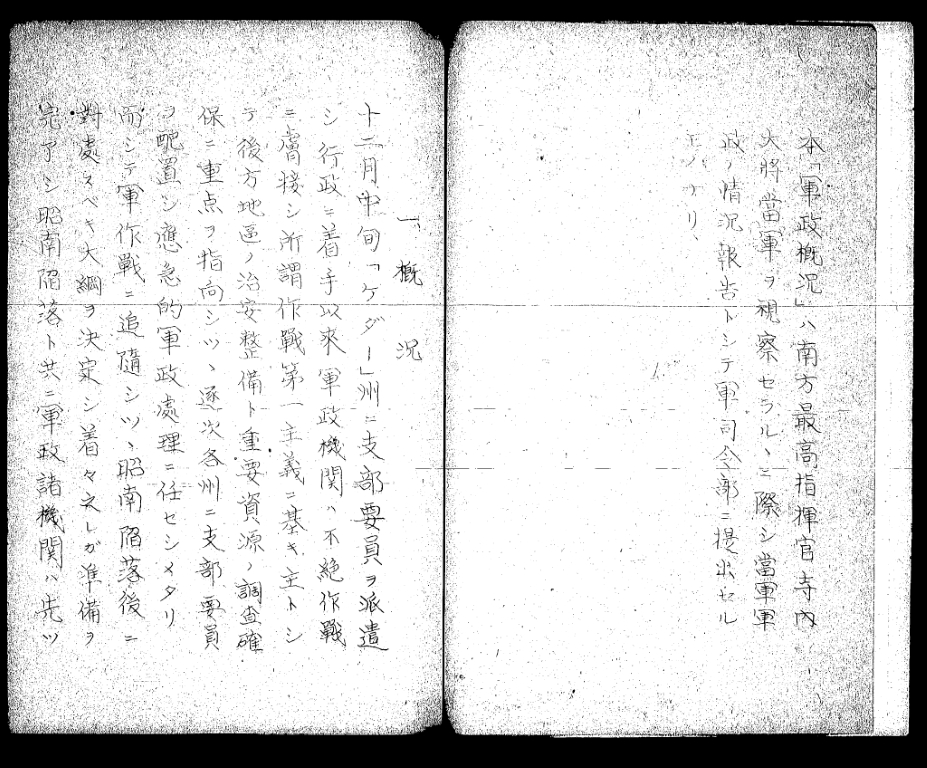 本「軍政概況」ハ南方最高指揮官寺內
大將當軍ヲ視察セラルヽニ際シ當軍軍
政ノ情況報告トシテ軍司令部ニ提出セル
モノナリ、
一、概況
十二月中旬「ケダー」州ニ支部要員ヲ派遣
シ行政ニ着手以來軍政機関ハ不絶作戰
ニ膚接シ所謂作戰第一主義ニ基キ主トシ
テ後方地區ノ治安整備ト重要資源ノ調査確
保ニ重点ヲ指向シツヽ逐次各州ニ支部要員
ヲ配置シ應急的軍政處理ニ任セシメタリ
而シテ軍作戰ニ追隨シツヽ昭南陷落後ニ
對處スベキ大綱ヲ決定シ着々之レガ準備ヲ
完了シ昭南陷落ト共ニ軍政諸機関ハ先ツ